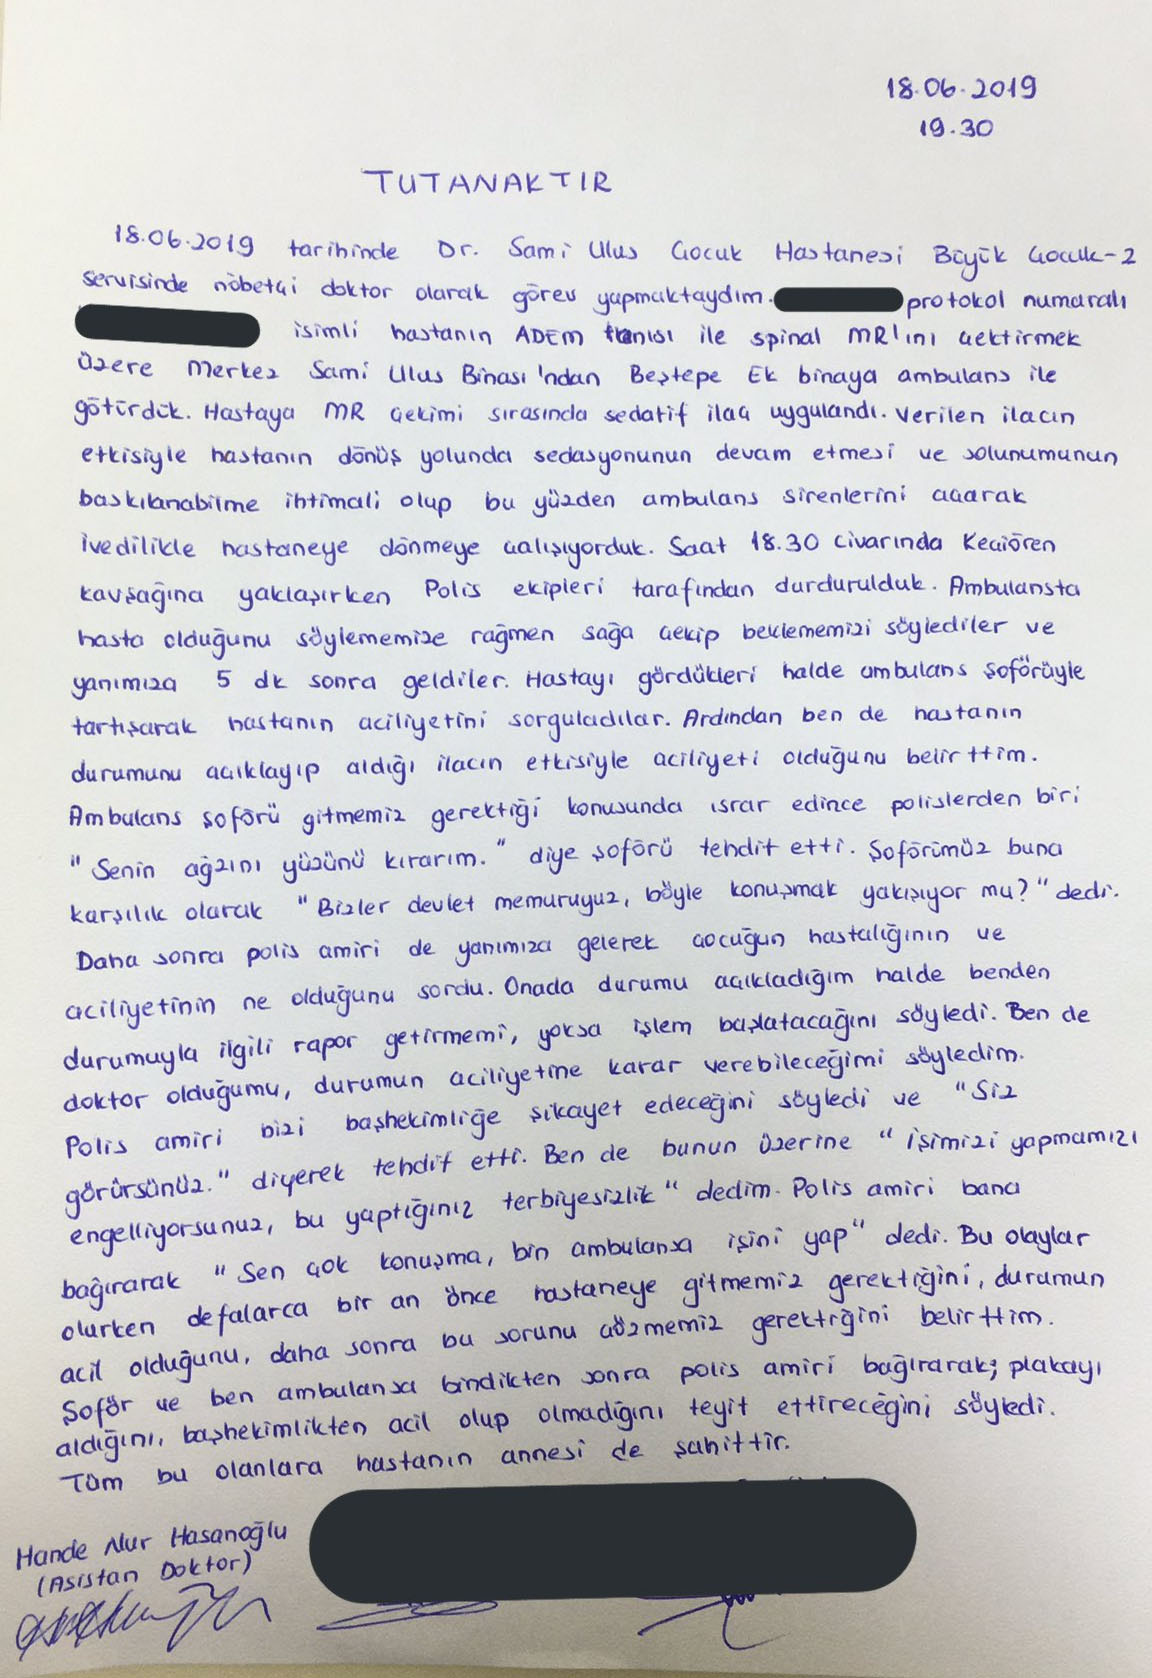 18.06.2019
19.30
TUTANAKTIR
18.06.2019 tarihinde Dr. Sami Ulus Çocuk Hastanesi Büyük Çocuk-2
servisinde nöbetçi doktor olarak görev yapmaktaydım. protokol numaralı
isimli hastanın ADEM tanısı ile spinal MR'ını çektirmek
üzere Merkez Sami Ulus Binası'ndan Beştepe Ek binaya ambulans ile
götürdük. Hastaya MR çekimi sırasında sedatif ilaç uygulandı. Verilen ilacın
etkisiyle hastanın dönüş yolunda sedasyonunun devam etmesi ve solunumunun
baskılanabilme ihtimali olup bu yüzden ambulans sirenlerini açarak
ivedilikle hastaneye dönmeye çalışıyorduk. Saat 18.30 civarında Keçiören
kavşağına yaklaşırken Polis ekipleri tarafından durdurulduk. Ambulansta
hasta olduğunu söylememize rağmen sağa çekip beklememizi söylediler ve
yanımıza 5 dk sonra geldiler. Hastayı gördükleri halde ambulans şoförüyle
tartışarak hastanın aciliyetini sorguladılar. Ardından ben de hastanın
durumunu açıklayıp aldığı ilacın etkisiyle aciliyeti olduğunu belirttim.
Ambulans şoförü gitmemiz gerektiği konusunda ısrar edince polislerden biri
" Senin ağzını yüzünü kırarım." diye şoförü tehdit etti. Şoförümüz buna
karşılık olarak "Bizler devlet memuruyuz, böyle konuşmak yakışıyor mu?" dedi.
Daha sonra polis amiri de yanımıza gelerek çocuğun hastalığının ve
aciliyetinin ne olduğunu sordu. Onada durumu açıkladığım halde benden
durumuyla ilgili rapor getirmemi, yoksa işlem başlatacağını söyledi. Ben de
doktor olduğumu, durumun aciliyetine karar verebileceğimi söyledim.
Polis amiri bizi başhekimliğe şikayet edeceğini söyledi ve "Siz
görürsünüz." diyerek tehdit etti. Ben de bunun üzerine "işimizi yapmamızı
engelliyorsunuz, bu yaptığınız terbiyesizlik" dedim. Polis amiri bana
bağırarak "Sen çok konuşma, bin ambulansa işini yap" dedi. Bu olaylar
olurken defalarca bir an önce hastaneye gitmemiz gerektiğini, durumun
acil olduğunu, daha sonra bu sorunu çözmemiz gerektiğini belirttim.
Şoför ve ben ambulansa bindikten sonra polis amiri bağırarak; plakayı
aldığını, başhekimlikten acil olup olmadığını teyit ettireceğini söyledi.
Tüm bu olanlara hastanın annesi de şahittir.
Hande Nur Hasanoğlu
(Asistan Doktor)